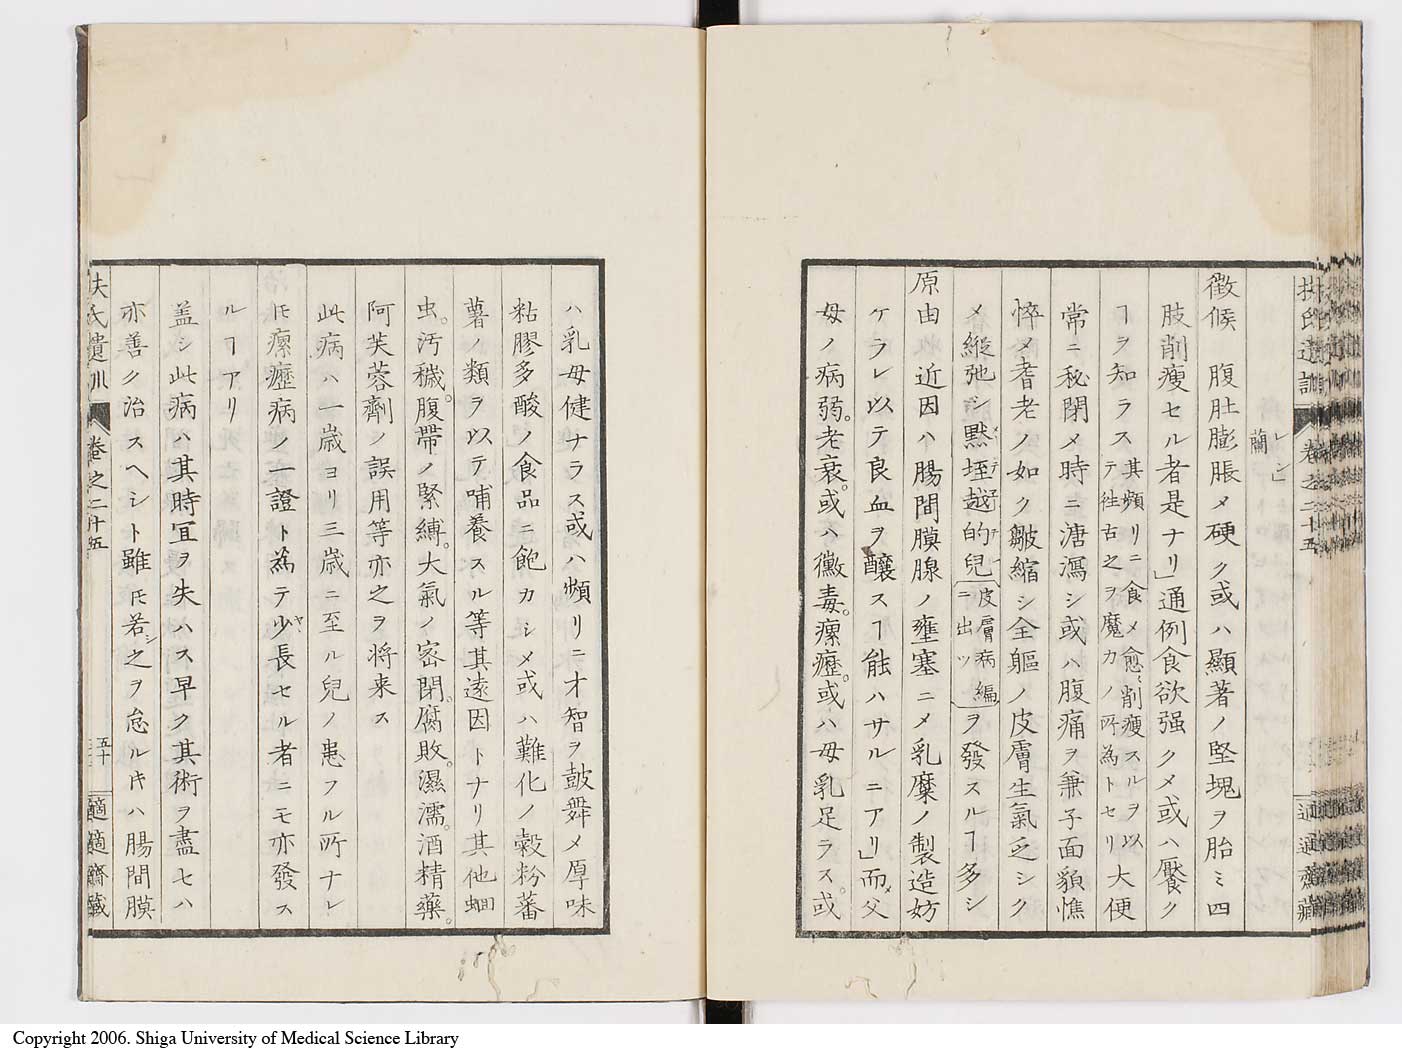 扶氏遺訓 卷之二十五 適適齋藏
レシ」
蘭
徵候 腹肚膨脹メ硬ク或ハ顯著ノ堅塊ヲ胎ミ四
肢削瘦セル者是ナリ」通例食欲强クメ或ハ饜ク
ヿヲ知ラス其頻リニ食メ愈〻削瘦スルヲ以テ徃古之ヲ魔カノ所為トセリ大便
常ニ秘閉メ時ニ溏瀉シ或ハ腹痛ヲ兼子面貌憔
悴メ耆老ノ如ク皺縮シ全軀ノ皮膚生氣乏シク
メ縦弛シ黙垤越的兒皮膚病編ニ出ツヲ發スルヿ多シ
原由 近因ハ腸間膜腺ノ壅塞ニメ乳糜ノ製造妨
ケラレ以テ良血ヲ釀スヿ能ハサルニアリ」而メ父
母ノ病弱。老衰。或ハ黴毒。瘰癧。或ハ母乳足ラス。或
ハ乳母健ナラス或ハ頻リニ才智ヲ鼓舞メ厚味
粘膠多酸ノ食品ニ飽カシメ或ハ難化ノ穀粉蕃
薯ノ類ヲ以テ哺養スル等其遠因トナリ其他蛔
虫。汚穢。腹帶ノ緊縛。大氣ノ密閉。腐敗。濕濡。酒精藥。
阿芙蓉劑ノ誤用等亦之ヲ将来ス
此病ハ一歳ヨリ三歳ニ至ル兒ノ患フル所ナレ
𪜈瘰癧病ノ一證ト為テ少ヤ〻長セル者ニモ亦發ス
ルヿアリ
盖シ此病ハ其時宜ヲ失ハス早ク其術ヲ盡セハ
亦善ク治スヘシト雖𪜈若シ之ヲ怠ル𬼀ハ腸間膜
扶氏遺訓 卷之二十五 五十 適適齋藏
Copyright 2006. Shiga University of Medical Science Library